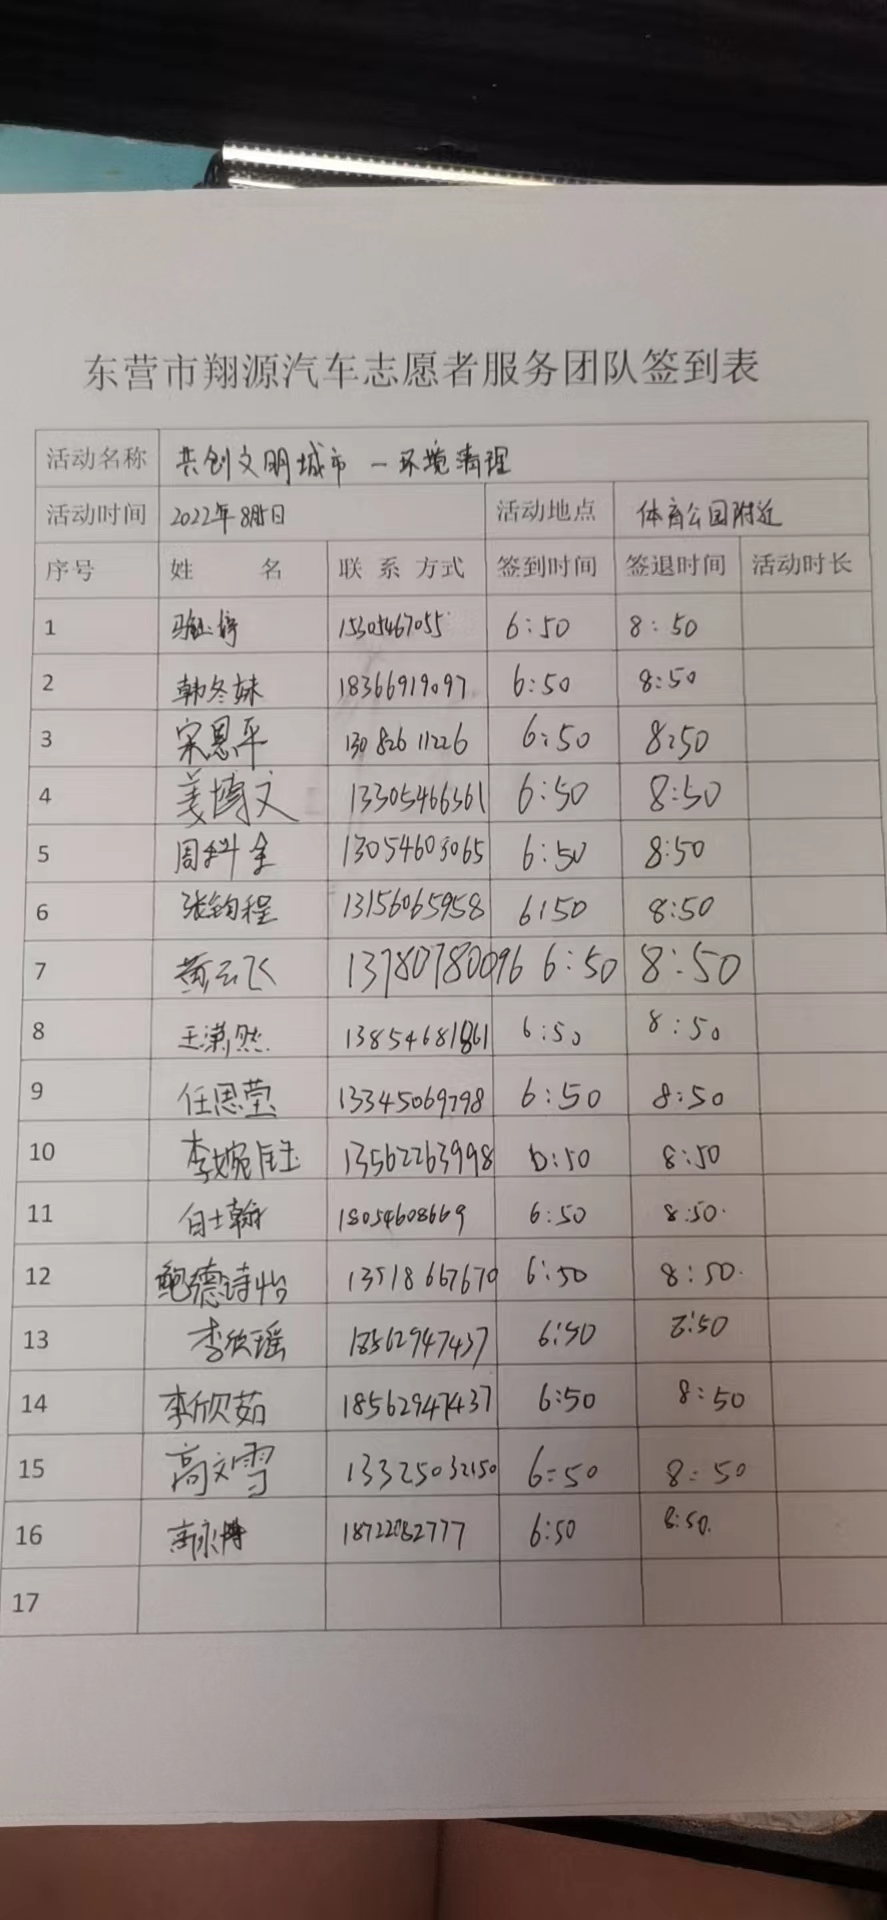 东营市翔源汽车志愿者服务团队签到表
活动名称 共创文明城市 一环境清理
活动时间 2022年8月5日 活动地点 体育公园附近
序号 姓 名 联 系 方式 签到时间 签退时间 活动时长
1 15305467055 6:50 8:50
2 韩冬妹 18366919097 6:50 8:50
3 宋恩平 130 826 11226 6:50 8:50
4 姜博文 13305466361 6:50 8:50
5 周科全 13054603065 6:50 8:50
6 张钧程 13156065958 6:50 8:50
7 黄云飞 13780780096 6:50 8:50
8 王潇然 13854681861 6:50 8:50
9 任思莹 13345069798 6:50 8:50
10 李婉钰 13562263998 6:50 8:50
11 白士翰 18054608669 6:50 8:50
12 鲍德诗怡 13518667670 6:50 8:50
13 李欣瑶 18562947437 6:50 8:50
14 李欣茹 18562947437 6:50 8:50
15 高文雪 13325032150 6:50 8:50
16 18722082777 6:50 8:50
17